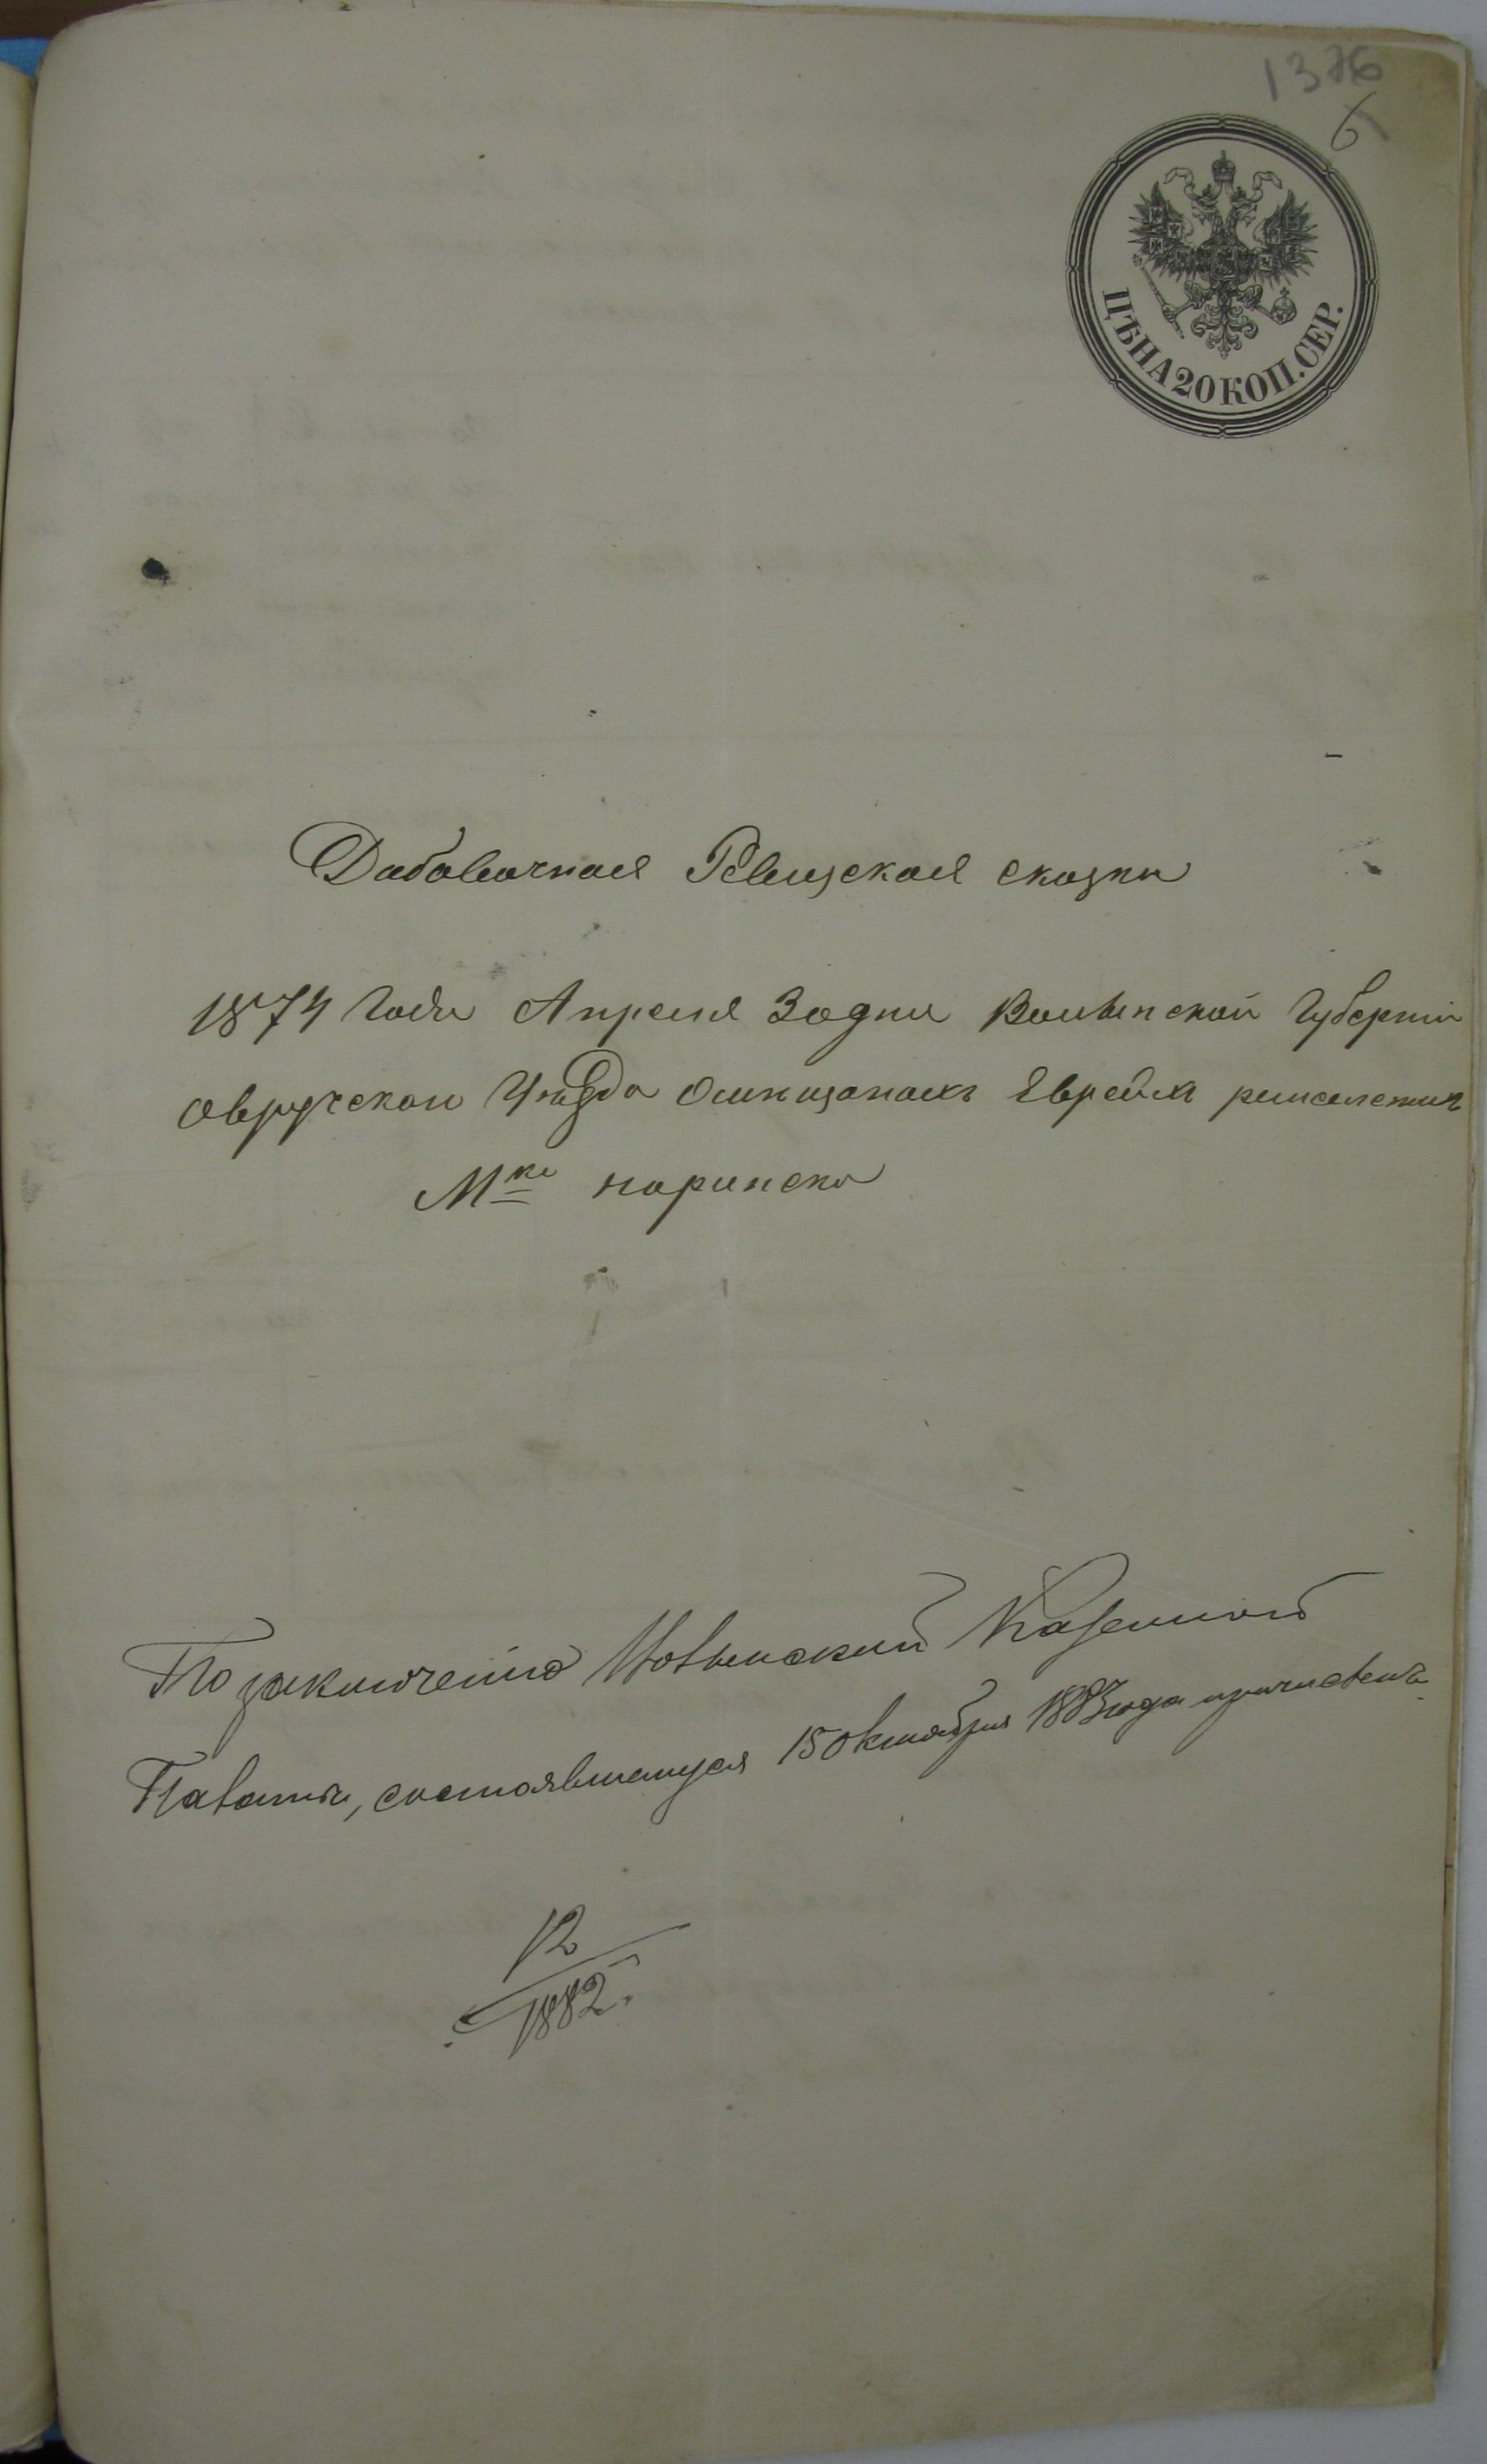 1376
6
ЦѢНА 20 КОП. СЕР.
Дабавочная Ревизская сказка
1874 года Апреля 30 дня Волынской Губерніи
Овручскаго Уѣзда О мѣщанахъ Евреяхъ
М<sup>ка</sup> Норинска
По заключенію Волынской Казенной
Палаты, состоявшемуся 15 Октября 1883 года причисленъ
12
1882.